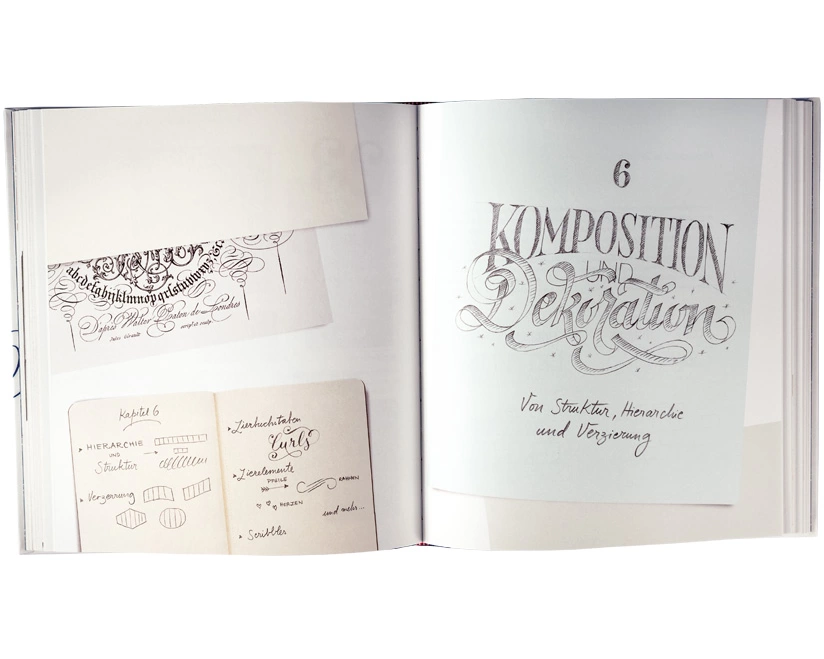 abcdefghijklmnopqrstuvwxyz
D'après Walter Paton de Londres
Kapitel 6
HIERARCHIE
UND
Struktur
Verzerrung
Zierbuchstaben
Curls
Zierelemente
PFEILE
RAHMEN
HERZEN
und mehr...
Scribbles
6
KOMPOSITION
UND
Dekoration
Von Struktur, Hierarchie
und Verzierung